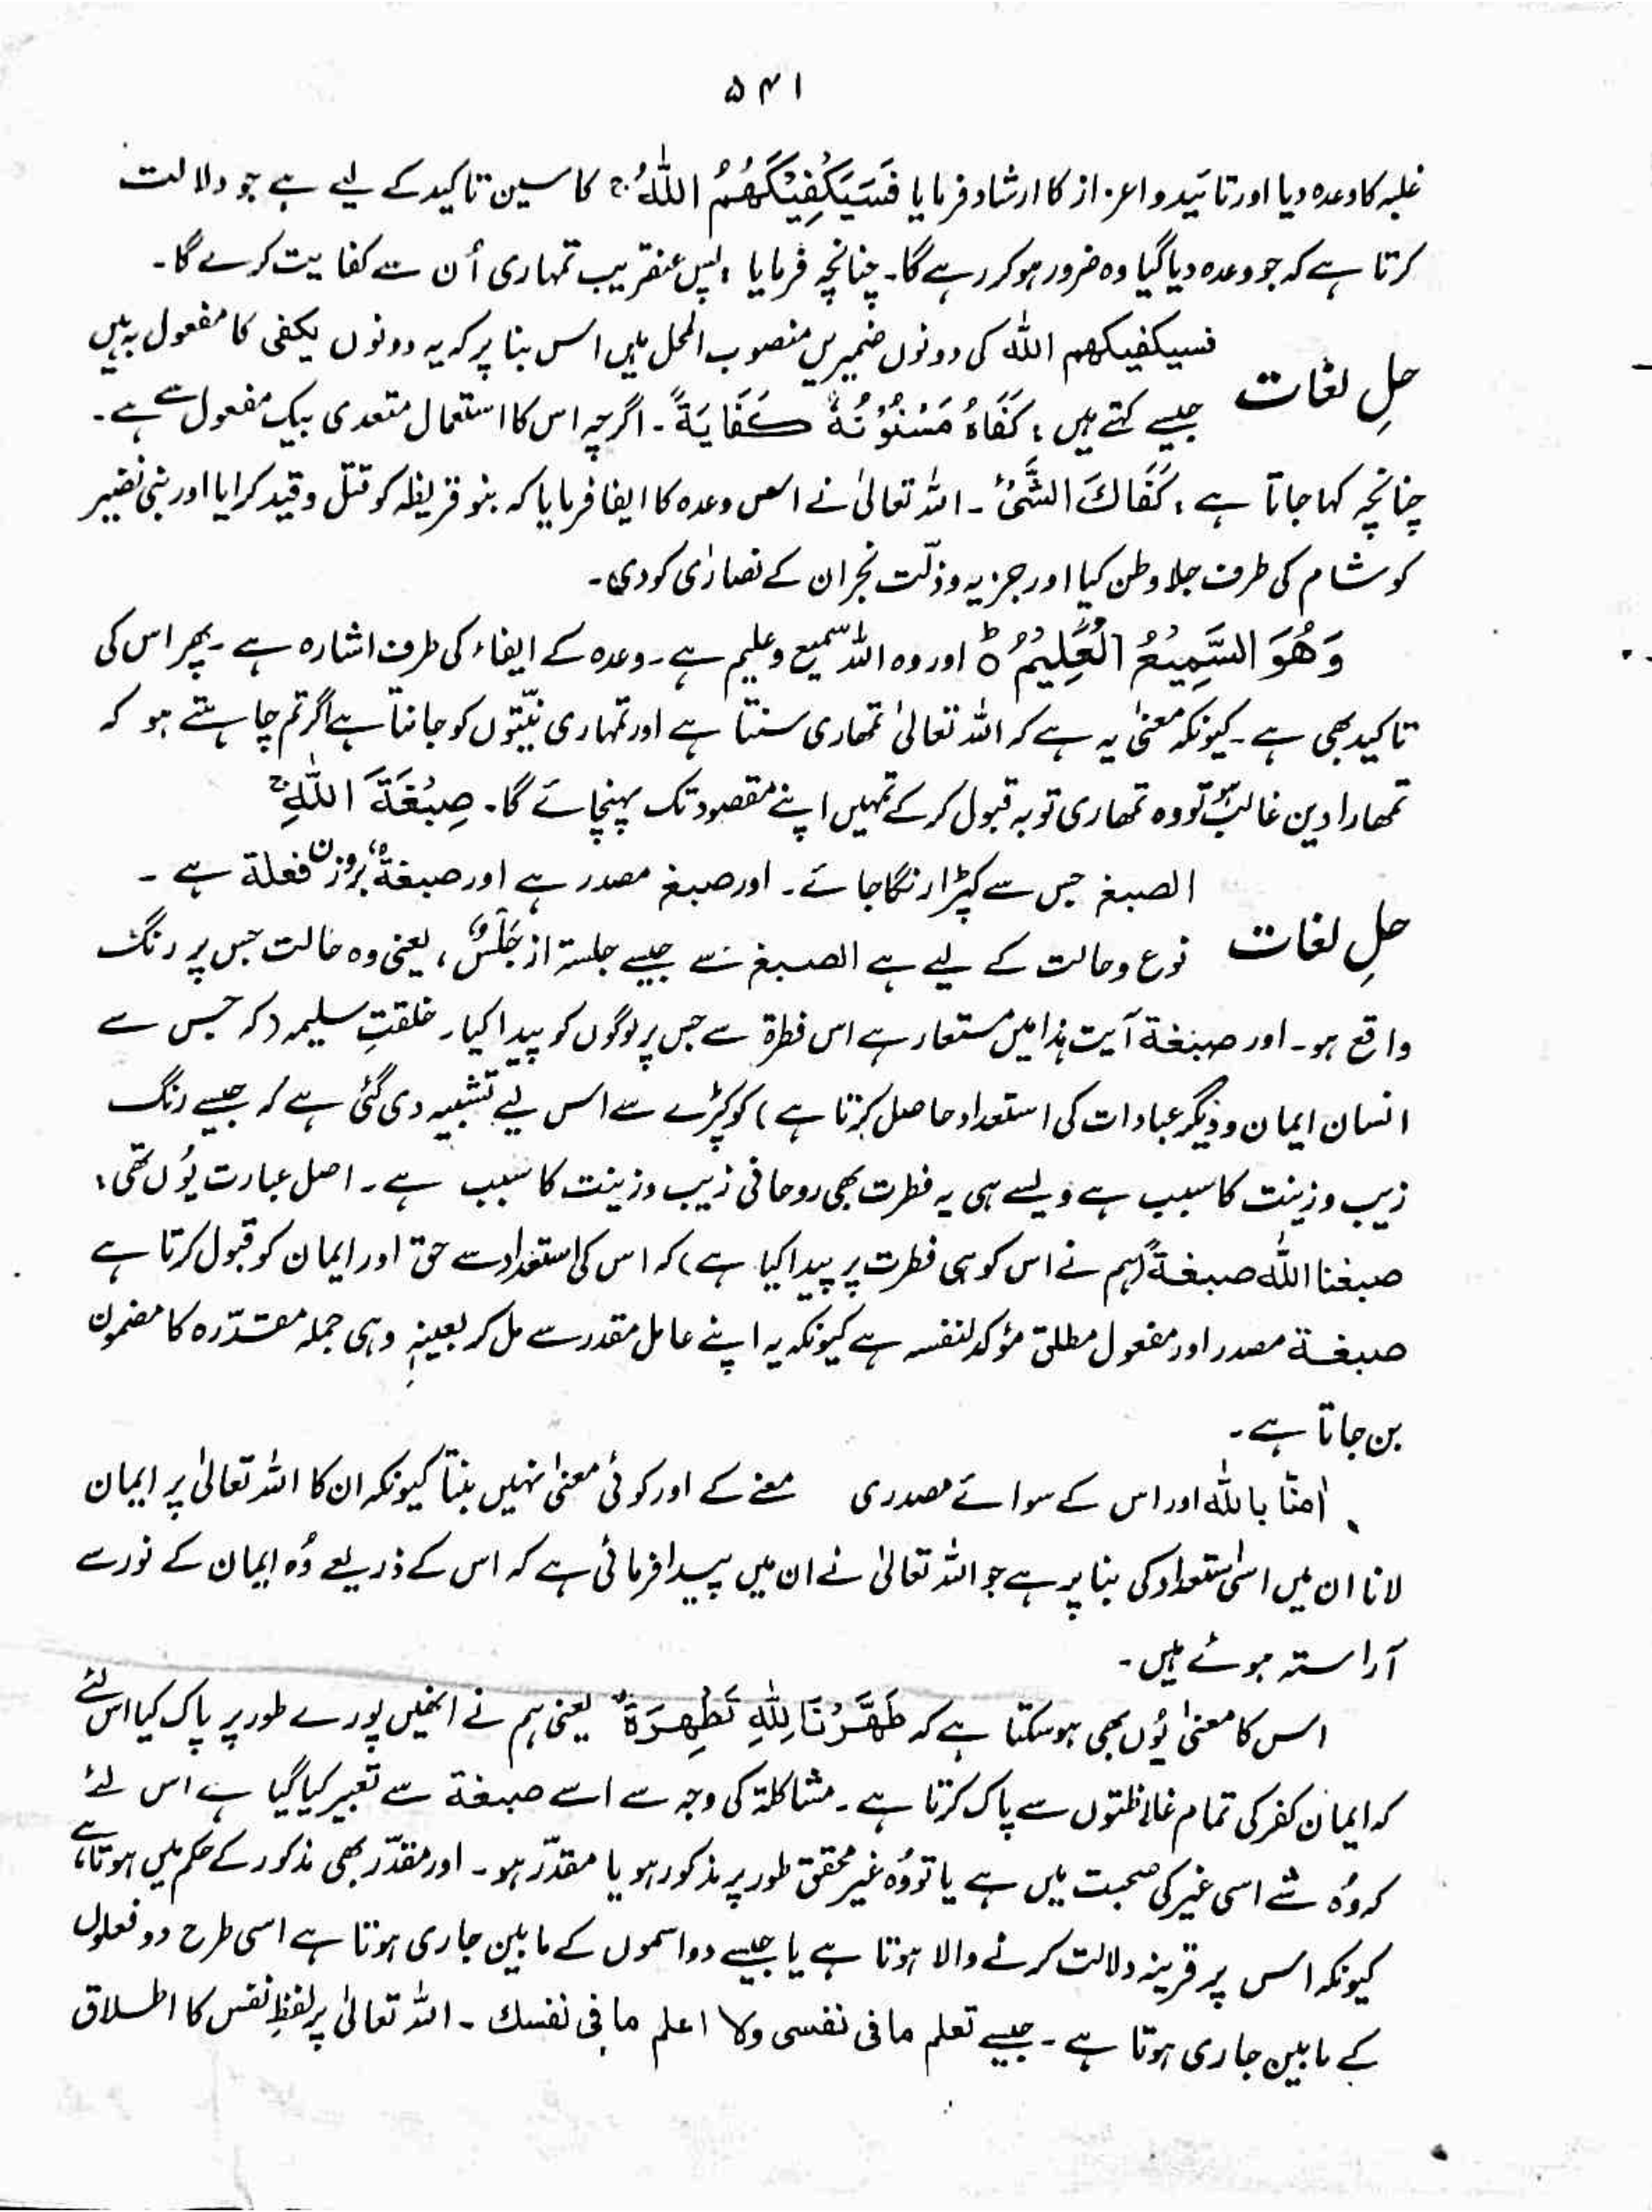 ۵۴۱
غلبہ کا وعدہ دیا اور تائید و اعزاز کا ارشاد فرمایا فَسَيَكْفِيْكَهُمُ اللّٰهُ ۚ کا سین تاکید کے لیے ہے جو دلالت
کرتا ہے کہ جو وعدہ دیا گیا وہ ضرور ہو کر رہے گا۔ چنانچہ فرمایا : پس عنقریب تمہاری اُن سے کفایت کرے گا۔
فسیکفیکھم اللہ کی دونوں ضمیریں منصوب المحل ہیں اس بنا پر کہ یہ دونوں یکفی کا مفعول بہ ہیں
حلِ لغات
جیسے کہتے ہیں : كَفَاهُ مَئُوْنَةً كَفَايَةً۔ اگرچہ اس کا استعمال متعدی بیک مفعول سے ہے۔
چنانچہ کہا جاتا ہے : كَفَاكَ الشَّىْءُ ۔ اللہ تعالیٰ نے اس وعدہ کا ایفا فرمایا کہ بنو قریظہ کو قتل و قید کرایا اور بنی نضیر
کو شام کی طرف جلا وطن کیا اور جزیہ و ذلّت نجران کے نصارٰی کو دی۔
وَهُوَ السَّمِيْعُ الْعَلِيْمُ ۝ اور وہ اللہ سمیع و علیم ہے۔ وعدہ کے ایفاء کی طرف اشارہ ہے ۔ پھر اس کی
تاکید بھی ہے ۔ کیونکہ معنیٰ یہ ہے کہ اللہ تعالیٰ تمھاری سنتا ہے اور تمہاری نیّتوں کو جانتا ہے اگر تم چاہتے ہو کہ
تمھارا دین غالب ہو تو وہ تمھاری توبہ قبول کر کے تمہیں اپنے مقصود تک پہنچائے گا۔ صِبْغَةَ اللّٰهِ ۚ
الصبغ جس سے کپڑا رنگا جائے۔ اور صبغ مصدر ہے اور صبغۃ، بروزن فعلۃ ہے ۔
حلِ لغات
نوع و حالت کے لیے ہے الصبغ سے جیسے جلسۃ از جَلَسَ، یعنی وہ حالت جس پر رنگ
واقع ہو۔ اور صبغۃ آیت ہٰذا میں مستعار ہے اس فطرۃ سے جس پر لوگوں کو پیدا کیا۔ خلقتِ سلیمہ (کہ جس سے
انسان ایمان و دیگر عبادات کی استعداد حاصل کرتا ہے) کو کپڑے سے اس لیے تشبیہ دی گئی ہے کہ جیسے رنگ
زیب و زینت کا سبب ہے ویسے ہی یہ فطرت بھی روحانی زیب و زینت کا سبب ہے۔ اصل عبارت یُوں تھی :
صبغنا اللہ صبغۃً (ہم نے اس کو ہی فطرت پر پیدا کیا ہے) کہ اس کی استعداد سے حق اور ایمان کو قبول کرتا ہے
صبغۃ مصدر اور مفعول مطلق مؤکد لنفسہ ہے کیونکہ یہ اپنے عامل مقدر سے مل کر بعینہٖ وہی جملہ مقدّرہ کا مضمون
بن جاتا ہے۔
اٰمنّا باللہ اور اس کے سوائے مصدری معنے کے اور کوئی معنیٰ نہیں بنتا کیونکہ ان کا اللہ تعالیٰ پر ایمان
لانا ان میں اسی استعداد کی بنا پر ہے جو اللہ تعالیٰ نے ان میں پیدا فرمائی ہے کہ اس کے ذریعے وُہ ایمان کے نور سے
آراستہ ہوئے ہیں۔
اس کا معنیٰ یُوں بھی ہو سکتا ہے کہ طَهَّرْنَا لِلّٰهِ تَطْهِرَةً یعنی ہم نے انھیں پورے طور پر پاک کیا اس لئے
کہ ایمان کفر کی تمام غلاظتوں سے پاک کرتا ہے۔ مشاکلۃ کی وجہ سے اسے صبغۃ سے تعبیر کیا گیا ہے اس لئے
کہ وُہ شے اسی غیر کی صحبت میں ہے یا تو وُہ غیر محقق طور پر مذکور ہو یا مقدّر ہو۔ اور مقدّر بھی مذکور کے حکم میں ہوتا ہے،
کیونکہ اس پر قرینہ دلالت کرنے والا ہوتا ہے یا جیسے دو اسموں کے مابین جاری ہوتا ہے اسی طرح دو فعلوں
کے مابین جاری ہوتا ہے ۔ جیسے تعلم ما فی نفسی ولا اعلم ما فی نفسك ۔ اللہ تعالیٰ پر لفظِ نفس کا اطلاق